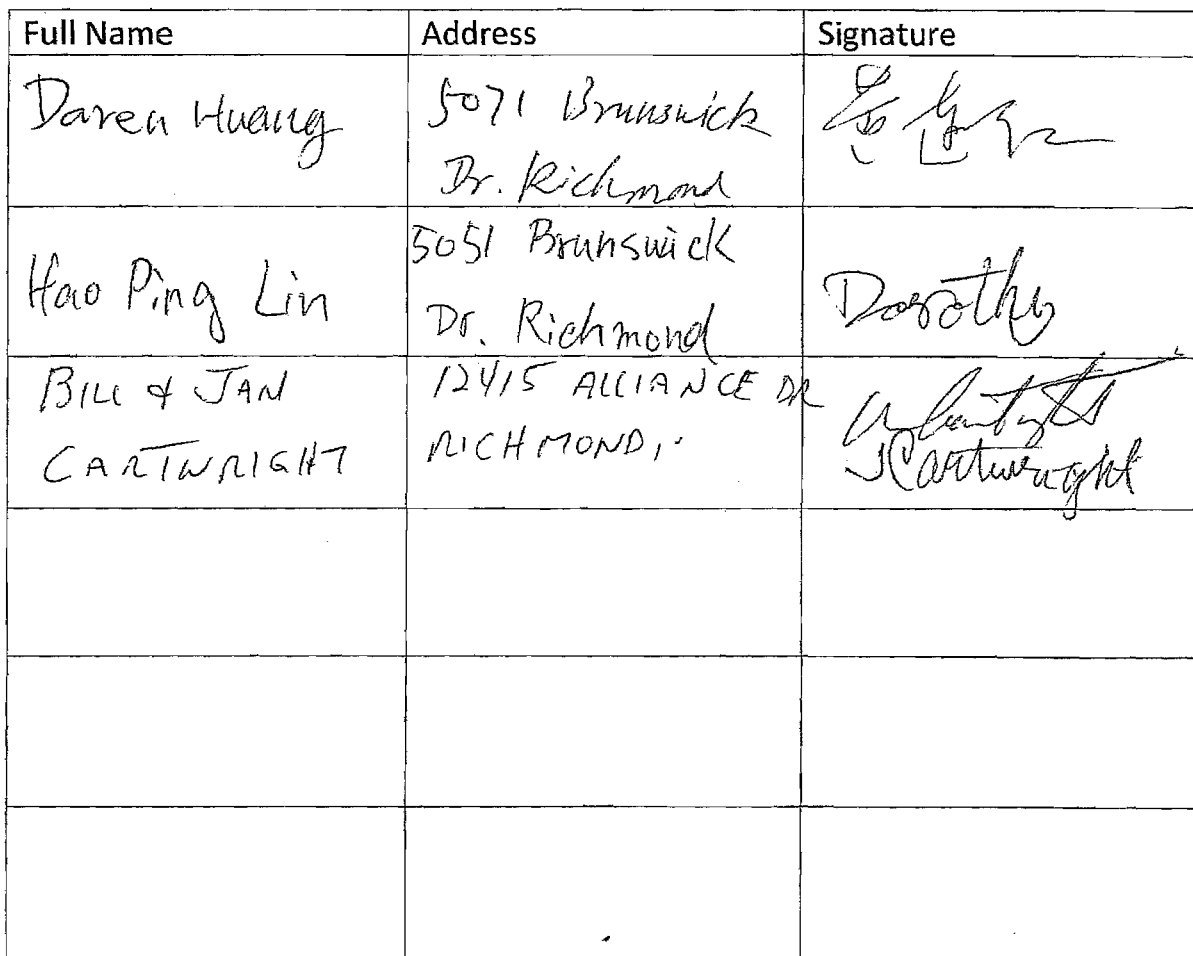 Full Name
Address
Signature
Daren Huang
5071 Brunswick
Dr. Richmond
Hao Ping Lin
5051 Brunswick
Dr. Richmond
Dorothy
BILL & JAN
CARTWRIGHT
12415 ALLIANCE DR
RICHMOND,
JCartwright